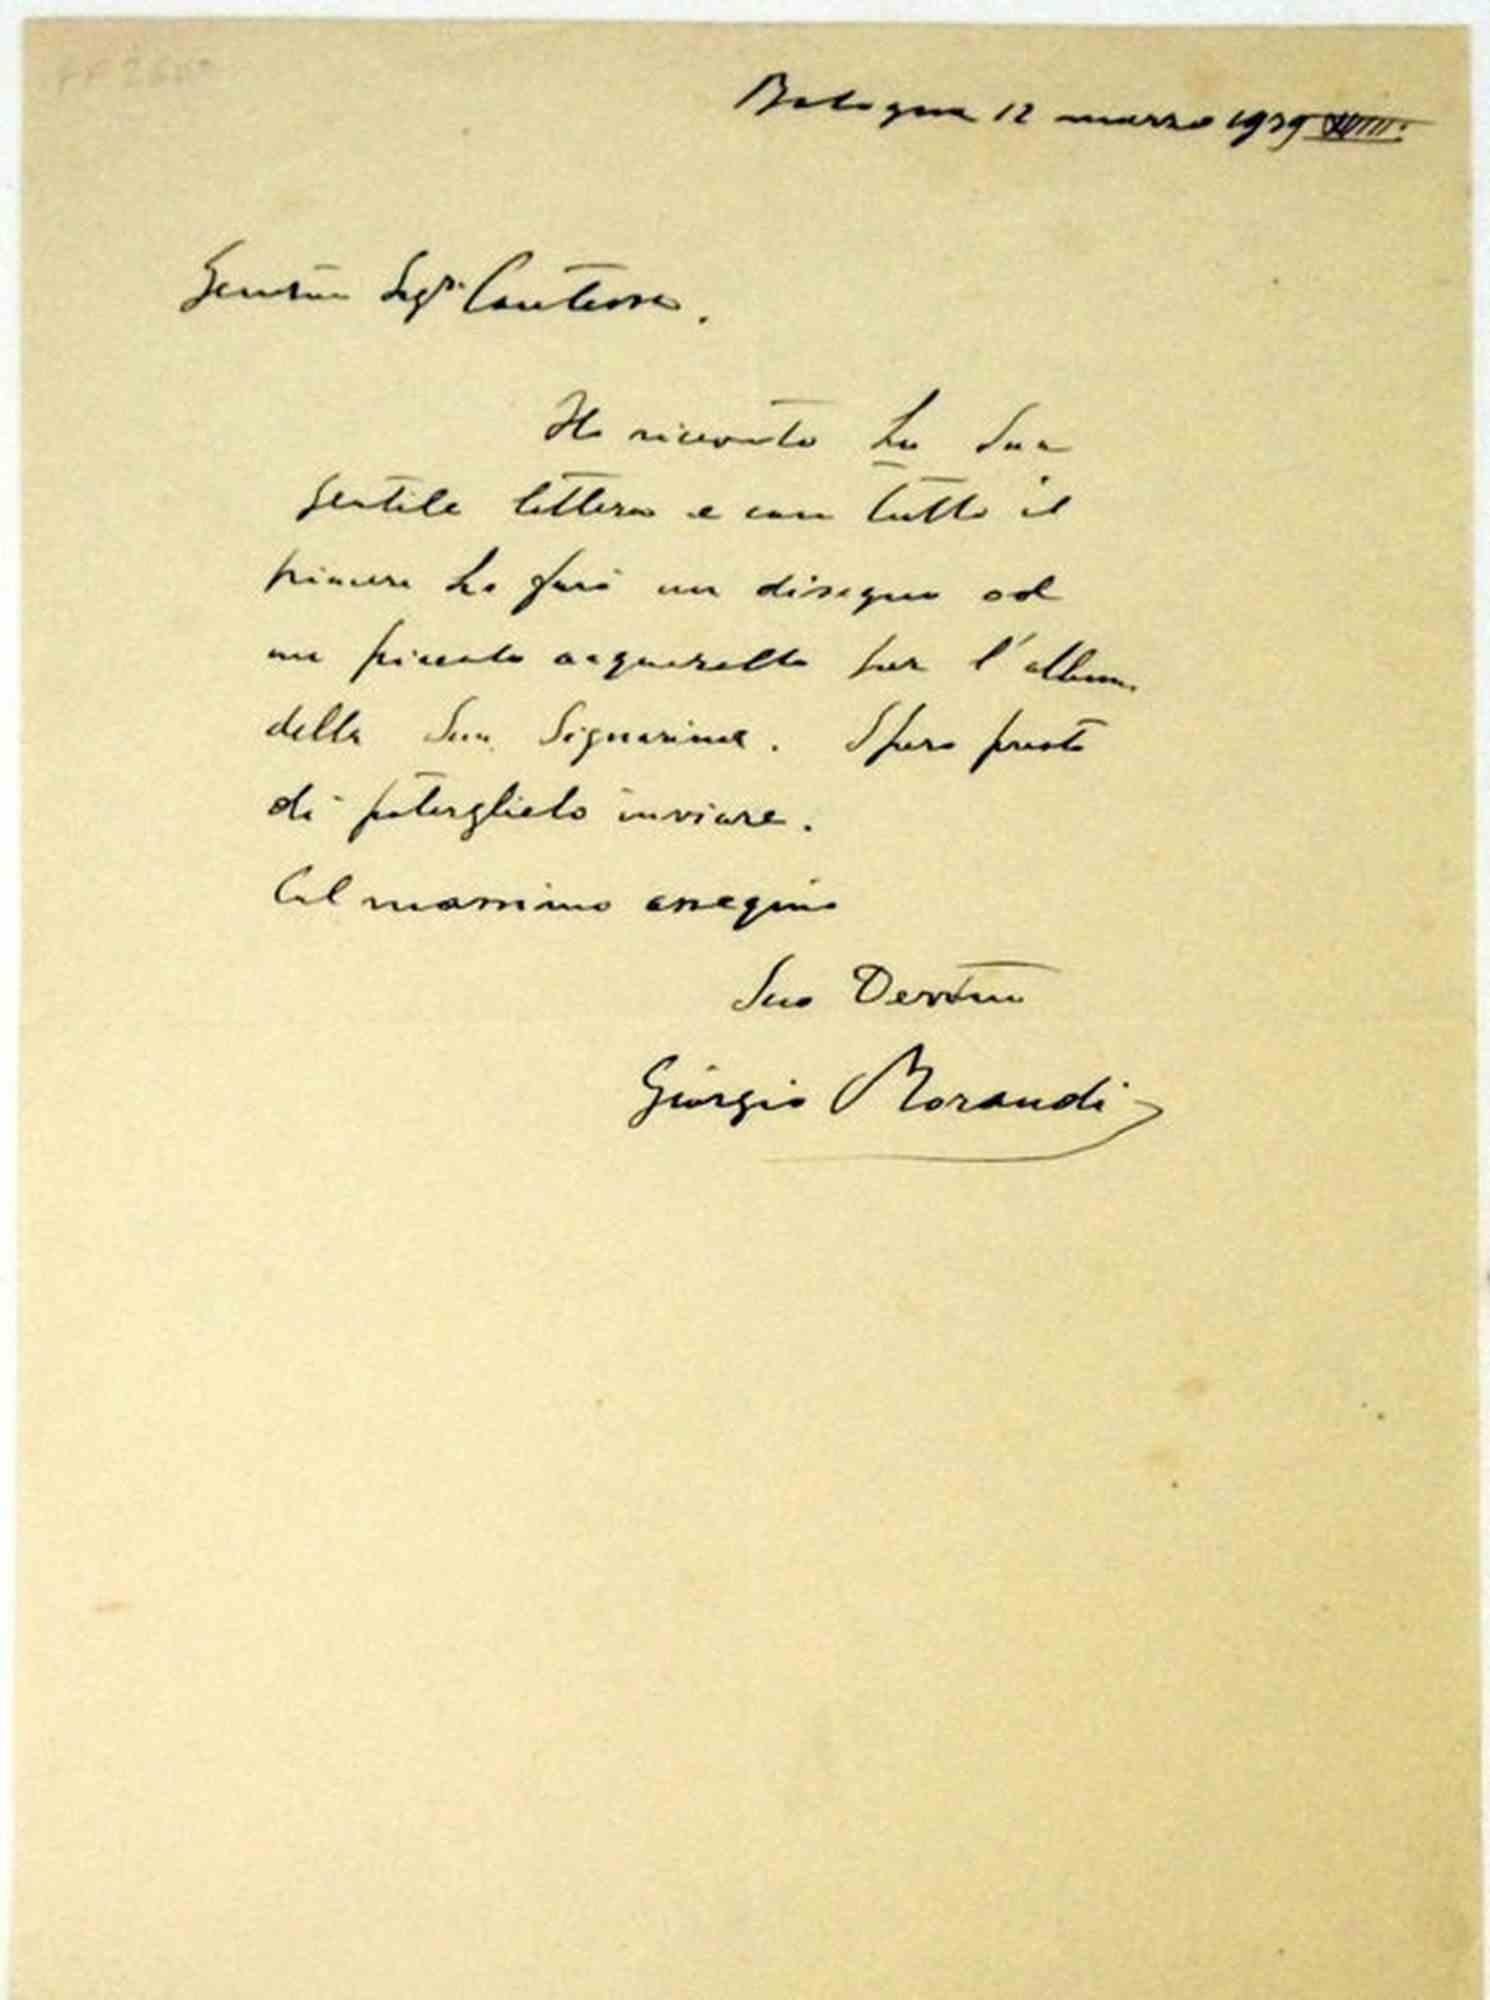 Bologna 12 marzo 1939 XVII.
Gent.ma Sig.ra Contessa.
Ho ricevuto la Sua
gentile lettera e con tutto il
piacere Le farò un disegno od
un piccolo acquerello per l'album
della Sua Signorina. Spero presto
di poterglielo inviare.
Col massimo ossequio
Suo Dev.mo
Giorgio Morandi